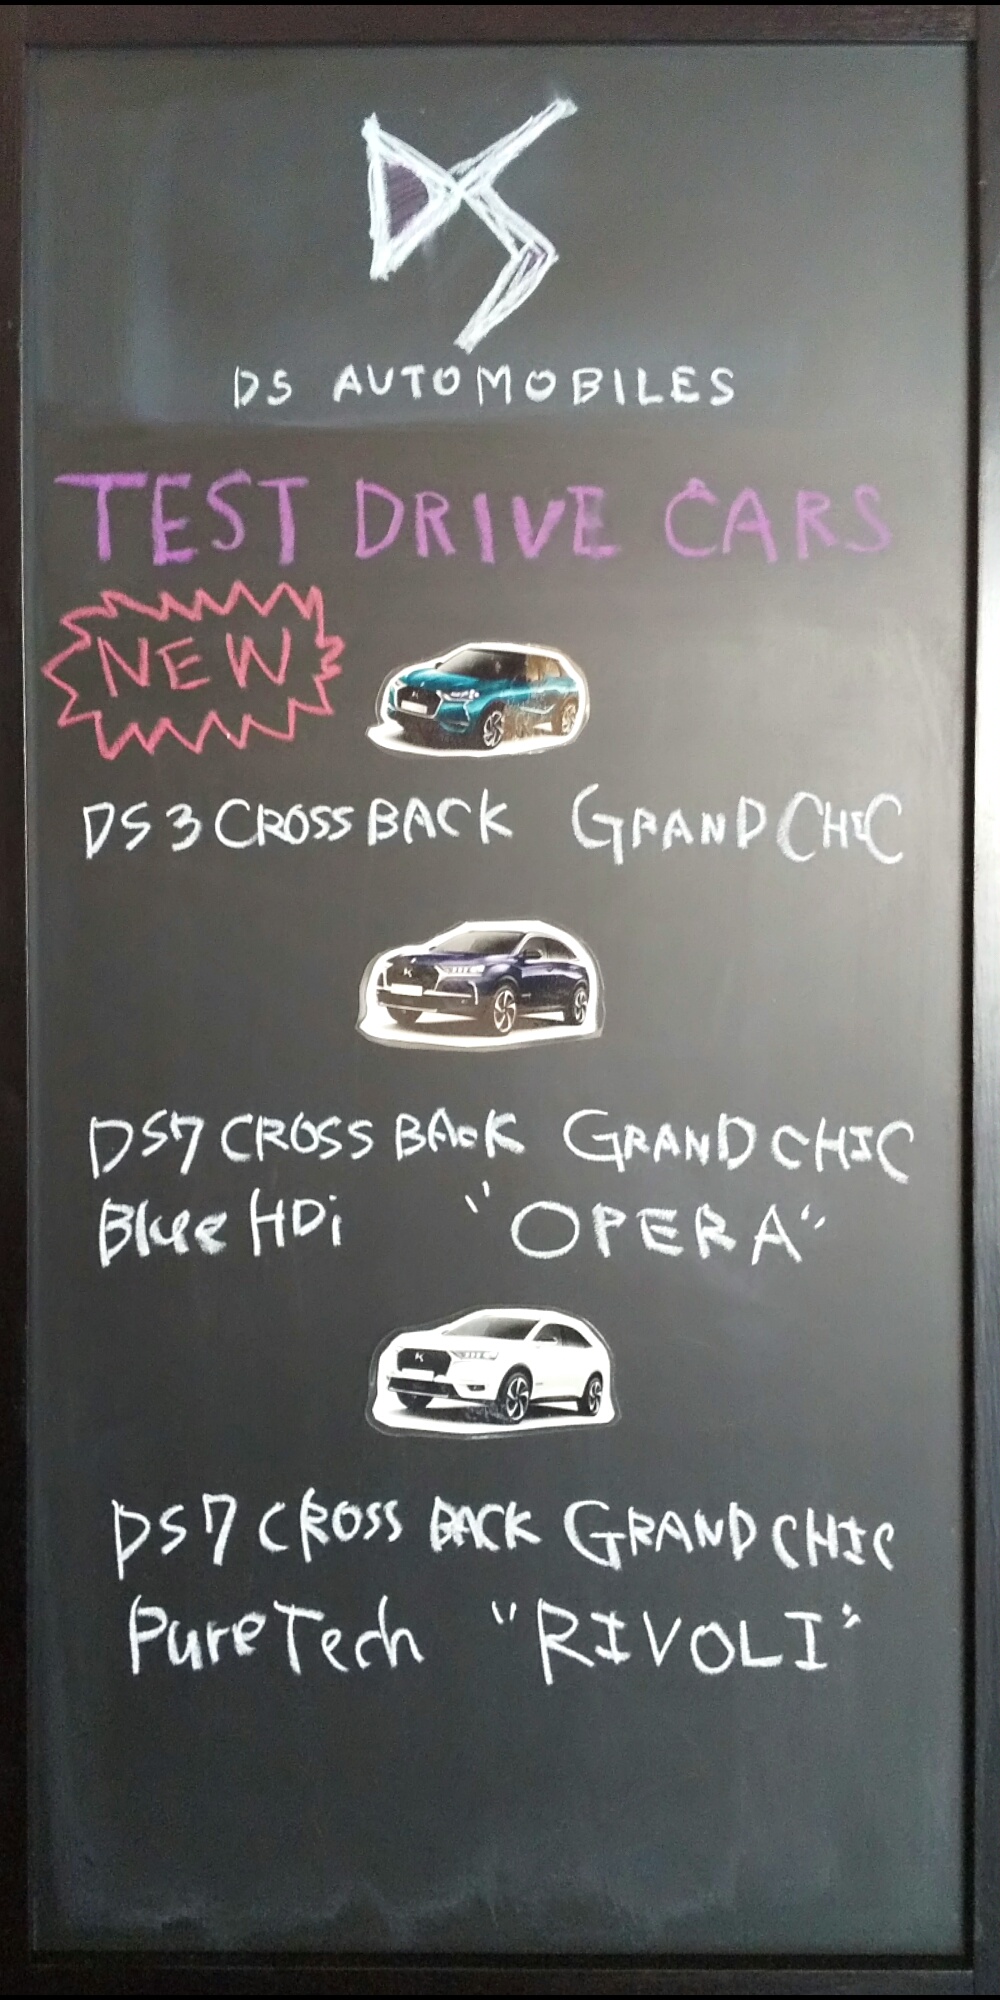 DS AUTOMOBILES
TEST DRIVE CARS
NEW
DS 3 CROSSBACK GRAND CHIC
DS7 CROSSBACK GRAND CHIC
BlueHDi "OPERA"
DS7 CROSSBACK GRAND CHIC
PureTech "RIVOLI"